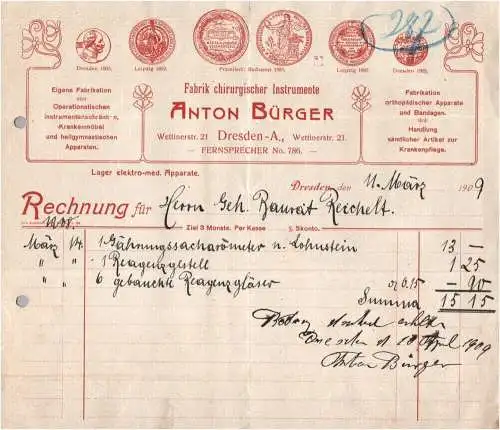 282
Dresden 1893. Leipzig 1892. Leipzig 1892. Dresden 1893.
Fabrik chirurgischer Instrumente
ANTON BÜRGER
Wettinerstr. 21 Dresden-A., Wettinerstr. 21.
FERNSPRECHER No. 786.
Eigene Fabrikation
von
Operationstischen
Instrumentenschränken,
Krankenmöbel
und heilgymnastischen
Apparaten.
Fabrikation
orthopädischer Apparate
und Bandagen.
Handlung
sämtlicher Artikel zur
Krankenpflege.
Lager elektro-med. Apparate.
Dresden, den 11. März 1909
Rechnung für Herrn Geh. Baurat Reichelt.
Ziel 3 Monate. Per Kasse % Skonto.
1908.
März 14. 1 Gährungssacharometer n. Lohnstein 13 —
" " 1 Reagenzgestell 1 25
" " 6 gebauchte Reagenzgläser — 90
Summa 15 15
Betrag dankend erhalten
Dresden d 18 April 1909
Anton Bürger